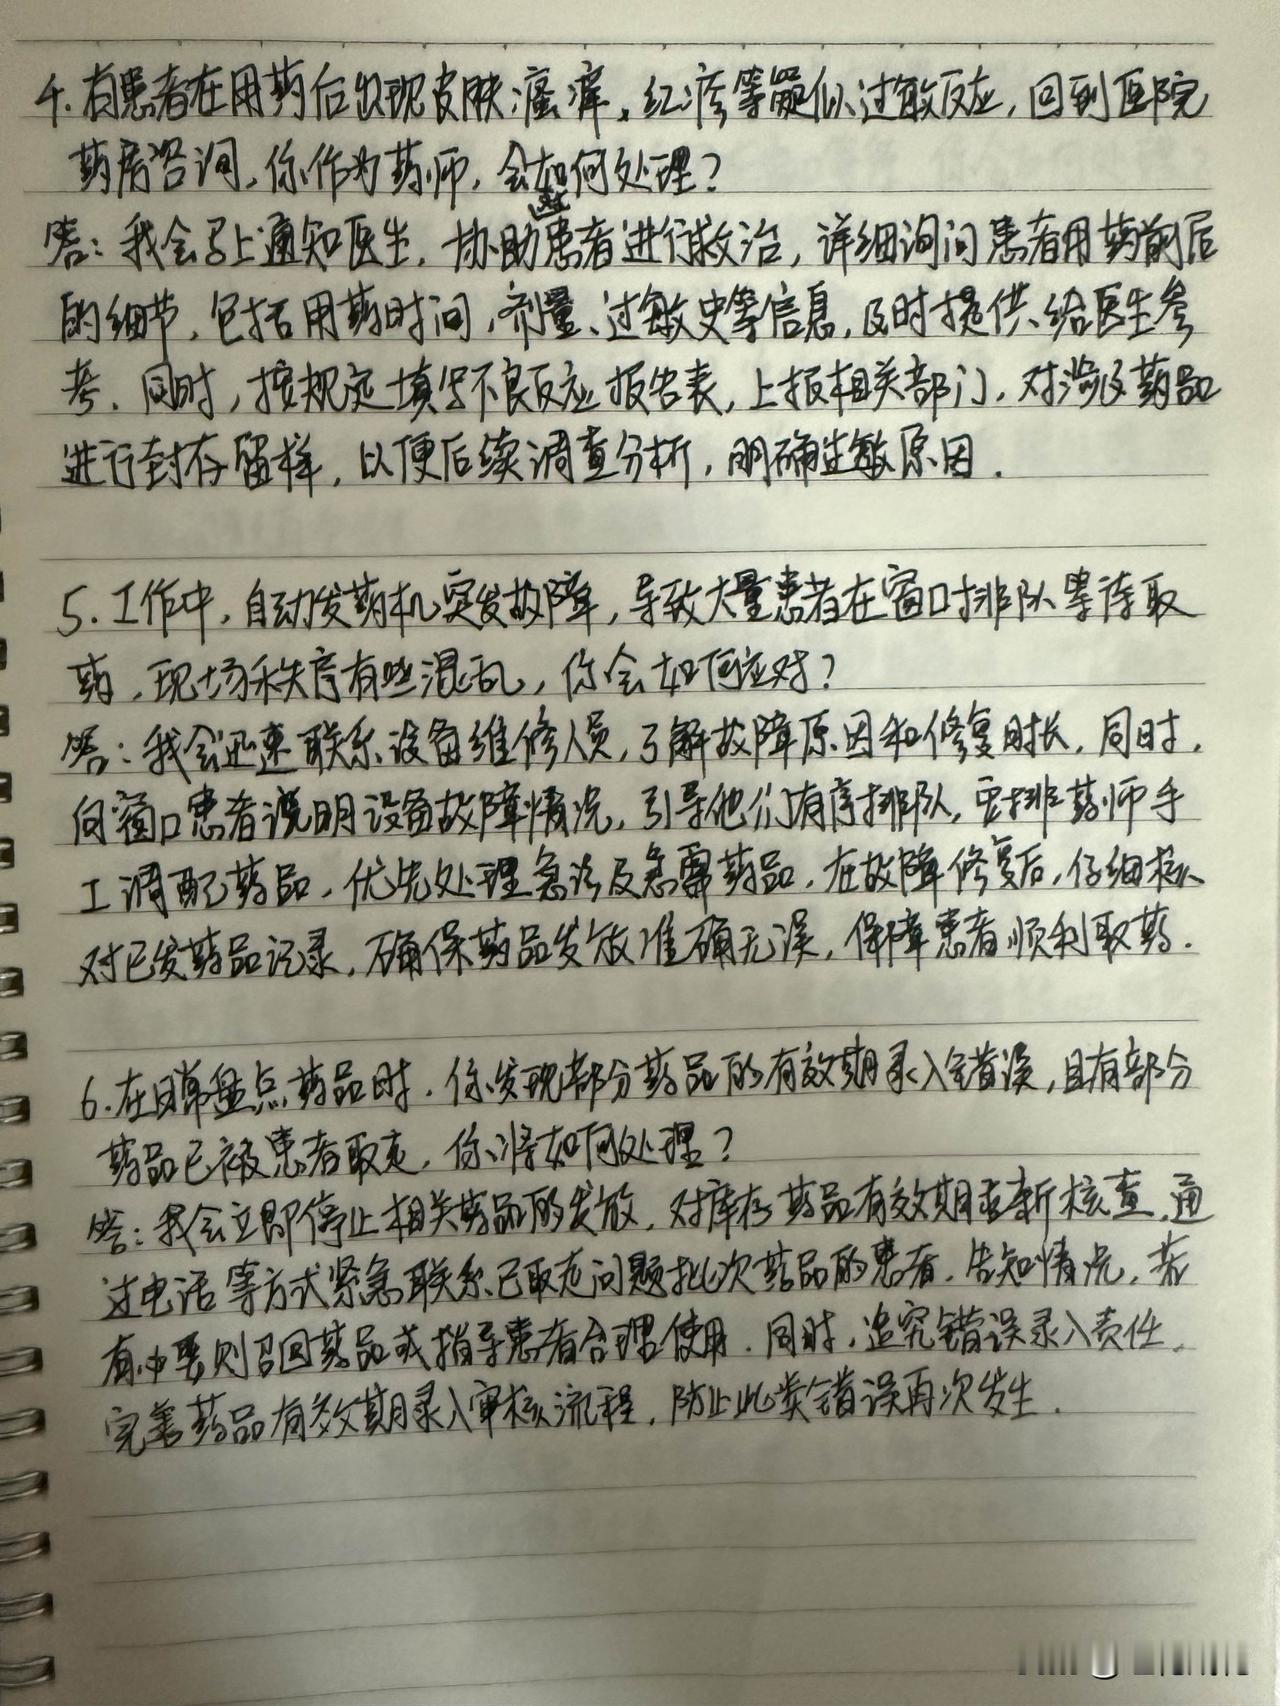 4.有患者在用药后出现皮肤瘙痒、红疹等疑似过敏反应,回到医院
药房咨询,你作为药师,会如何处理?
答:我会马上通知医生,协助患者进行救治,详细询问患者用药前后
的细节,包括用药时间,剂量、过敏史等信息,及时提供给医生参
考.同时,按规定填写不良反应报告表,上报相关部门,对涉及药品
进行封存留样,以便后续调查分析,明确过敏原因.
5.工作中,自动发药机突发故障,导致大量患者在窗口排队等待取
药,现场秩序有些混乱,你会如何应对?
答:我会迅速联系设备维修人员,了解故障原因和修复时长,同时,
向窗口患者说明设备故障情况,引导他们有序排队,安排药师手
工调配药品,优先处理急诊及急需药品,在故障修复后,仔细核
对已发药品记录,确保药品发放准确无误,保障患者顺利取药.
6.在日常盘点药品时,你发现部分药品的有效期录入错误,且有部分
药品已被患者取走,你将如何处理?
答:我会立即停止相关药品的发放,对库存药品有效期重新核查,通
过电话等方式紧急联系已取走问题批次药品的患者,告知情况,若
有必要则召回药品或指导患者合理使用.同时,追究错误录入责任,
完善药品有效期录入审核流程,防止此类错误再次发生.